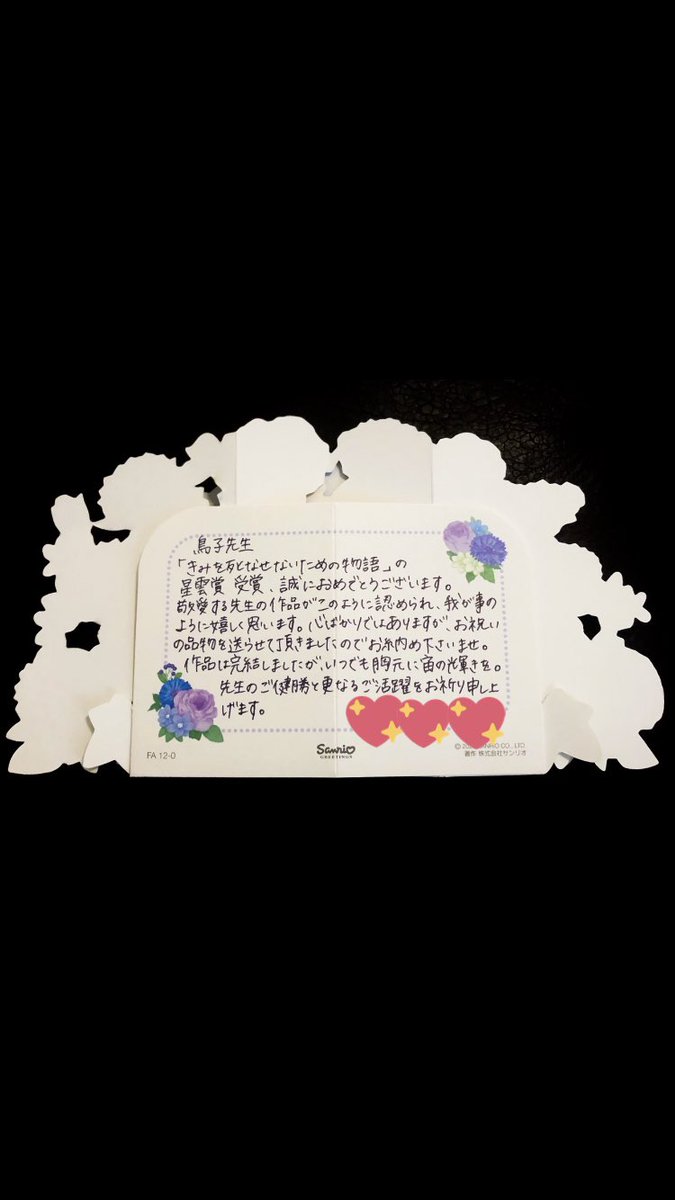 鳥子先生
「きみを死なせないための物語」の
星雲賞 受賞、誠におめでとうございます。
敬愛する先生の作品がこのように認められ、我が事の
ように嬉しく思います。心ばかりではありますが、お祝い
の品物を送らせて頂きましたのでお納め下さいませ。
作品は完結しましたが、いつでも胸元に宙の輝きを。
先生のご健勝と更なるご活躍をお祈り申し上
げます。
FA 12-0
Sanrio
GREETINGS
CO., LTD
著作 株式会社サンリオ